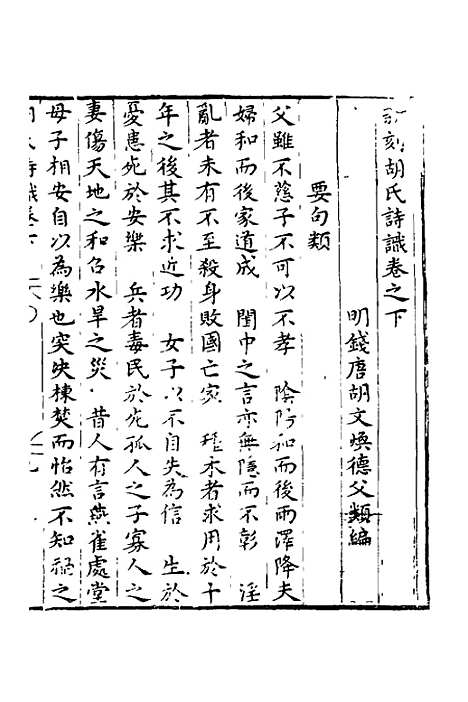 新刻胡氏詩識卷之下
明錢唐胡文煥德父類編
要句類
父雖不慈子不可以不孝　陰陽和而後雨澤降夫
婦和而後家道成　閨中之言亦無隱而不彰　淫
亂者未有不至殺身敗國亡家　種木者求用於十
年之後其不求近功　女子以不自失為信　生於
憂患死於安樂　兵者毒民於死孤人之子寡人之
妻傷天地之和召水旱之災　昔人有言燕雀處堂
母子相安自以為樂也突決棟焚而怡然不知禍之